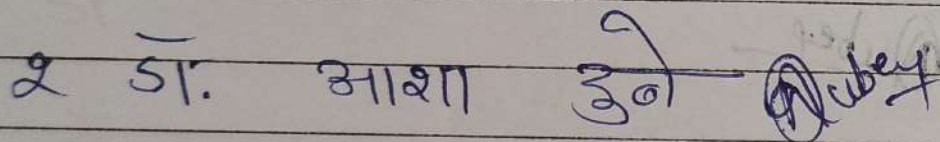 २ डॉ. आशा दुबे Dubey